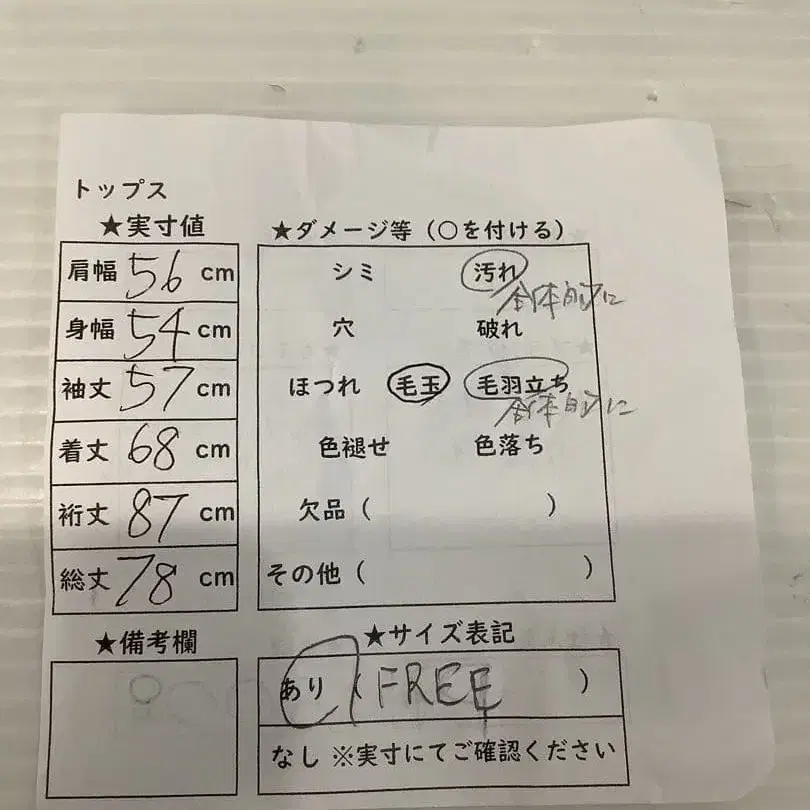 トップス
★実寸値
肩幅 56 cm
身幅 54 cm
袖丈 57 cm
着丈 68 cm
裄丈 87 cm
総丈 78 cm
★ダメージ等（○を付ける）
シミ 汚れ
全体的に
穴 破れ
ほつれ 毛玉 毛羽立ち
全体的に
色褪せ 色落ち
欠品（ ）
その他（ ）
★備考欄
★サイズ表記
あり（FREE ）
なし ※実寸にてご確認ください